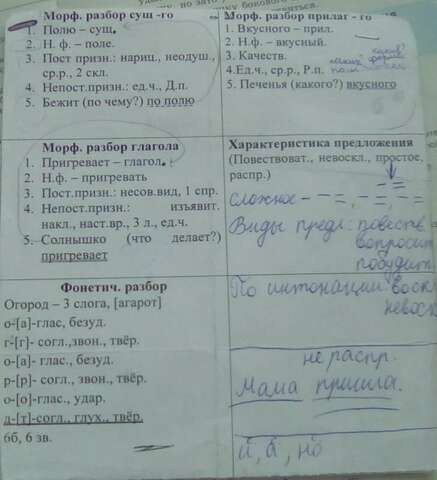 Морф. разбор сущ -го
1. Полю – сущ.
2. Н. ф. – поле.
3. Пост призн.: нариц., неодуш., ср.р., 2 скл.
4. Непост.призн.: ед.ч., Д.п.
5. Бежит (по чему?) по полю
Морф. разбор прилаг - го
1. Вкусного – прил.
2. Н.ф. – вкусный.
3. Качеств.
4.Ед.ч., ср.р., Р.п.
5. Печенья (какого?) вкусного
Морф. разбор глагола
1. Пригревает – глагол.
2. Н.ф. – пригревать
3. Пост.призн.: несов.вид, 1 спр.
4. Непост.призн.: изъявит. накл., наст.вр., 3 л., ед.ч.
5. Солнышко (что делает?) пригревает
Характеристика предложения
(Повествоват., невоскл., простое, распр.)
сложное
Виды предл: повеств
вопросит
побудит
По интонации воскл
невоск
не распр.
Мама пришла.
и, а, но
Фонетич. разбор
Огород – 3 слога, [агарот]
о-[а]-глас, безуд.
г-[г]- согл.,звон., твёр.
о-[а]- глас., безуд.
р-[р]- согл., звон., твёр.
о-[о]-глас., удар.
д-[т]-согл., глух., твёр.
6б, 6 зв.